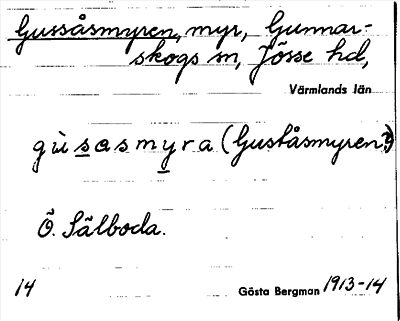 Gussåsmyren, myr, Gunnar-
skogs sn, Jösse hd,
Värmlands län
gùsasmyra (Guståsmyren?)
Ö. Sälboda.
14 Gösta Bergman 1913-14